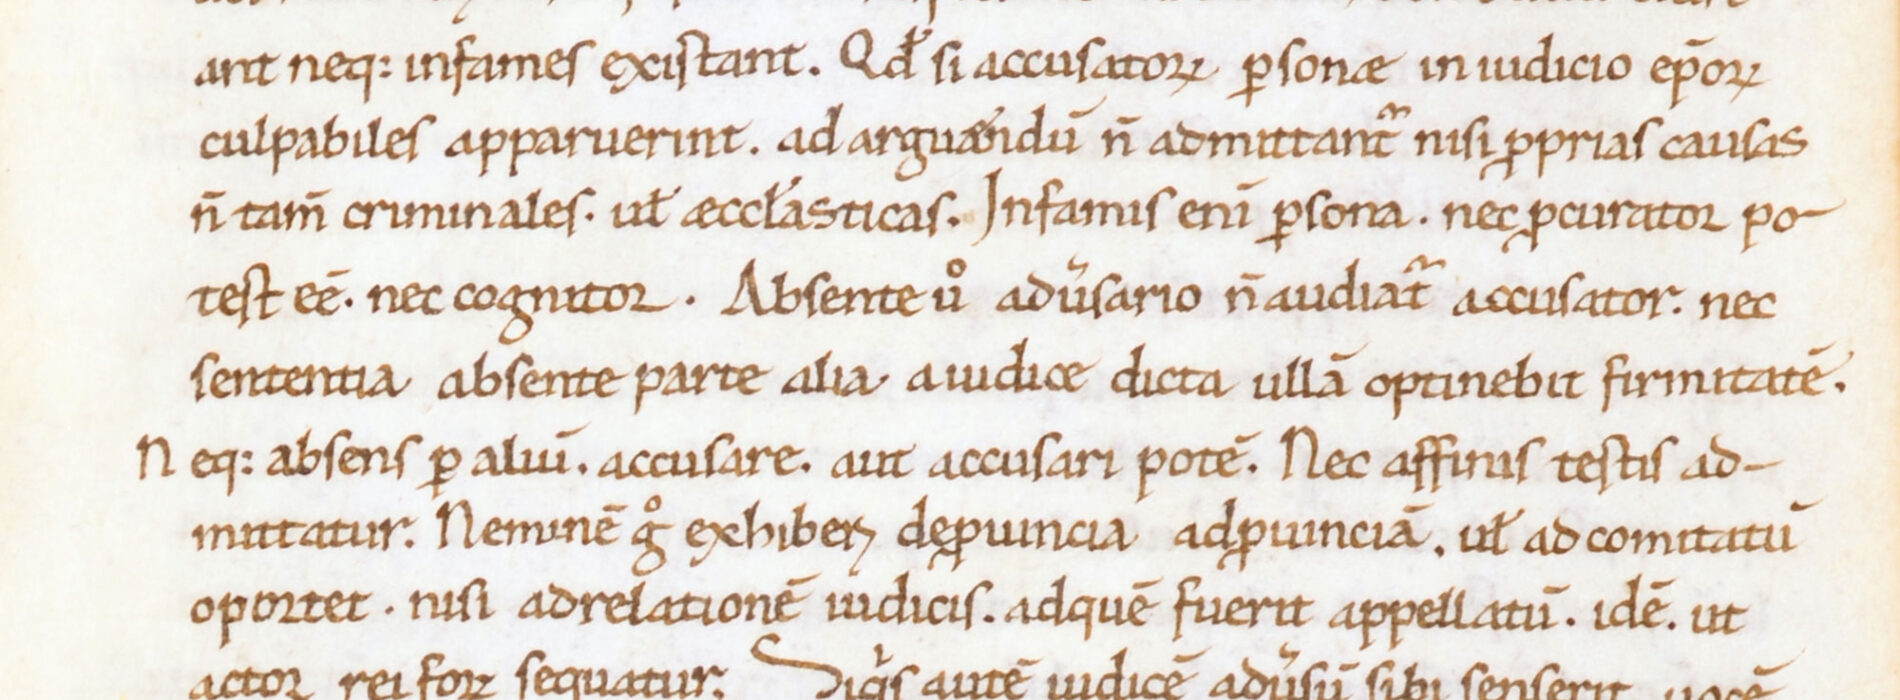 ant neq: infames existant. Qđ si accusatoꝝ ꝑsonæ in iudicio ep̄oꝝ
culpabiles apparuerint. ad arguendū n̄ admittant᷑ nisi ꝓprias causas
n̄ tam̄ criminales. uł æccłasticas. Infamis enī ꝑsona. nec ꝓcurator po-
test eē. nec cognitor. Absente uͦ adu̓sario n̄ audiat᷑ accusator. nec
sententia absente parte alia a iudice dicta ullā optinebit firmitatē.
Neq: absens ꝑ aliū. accusare. aut accusari potē. Nec affinis testis ad-
mittatur. Neminē gͦ exhiberꝫ de ꝓuincia ad ꝓuinciā. uł ad comitatū
oportet. nisi ad relationē iudicis. ad quē fuerit appellatū. idē. ut
actor rei forꝫ sequatur. Siqͥs autē iudicē adu̓sū sibi senserit